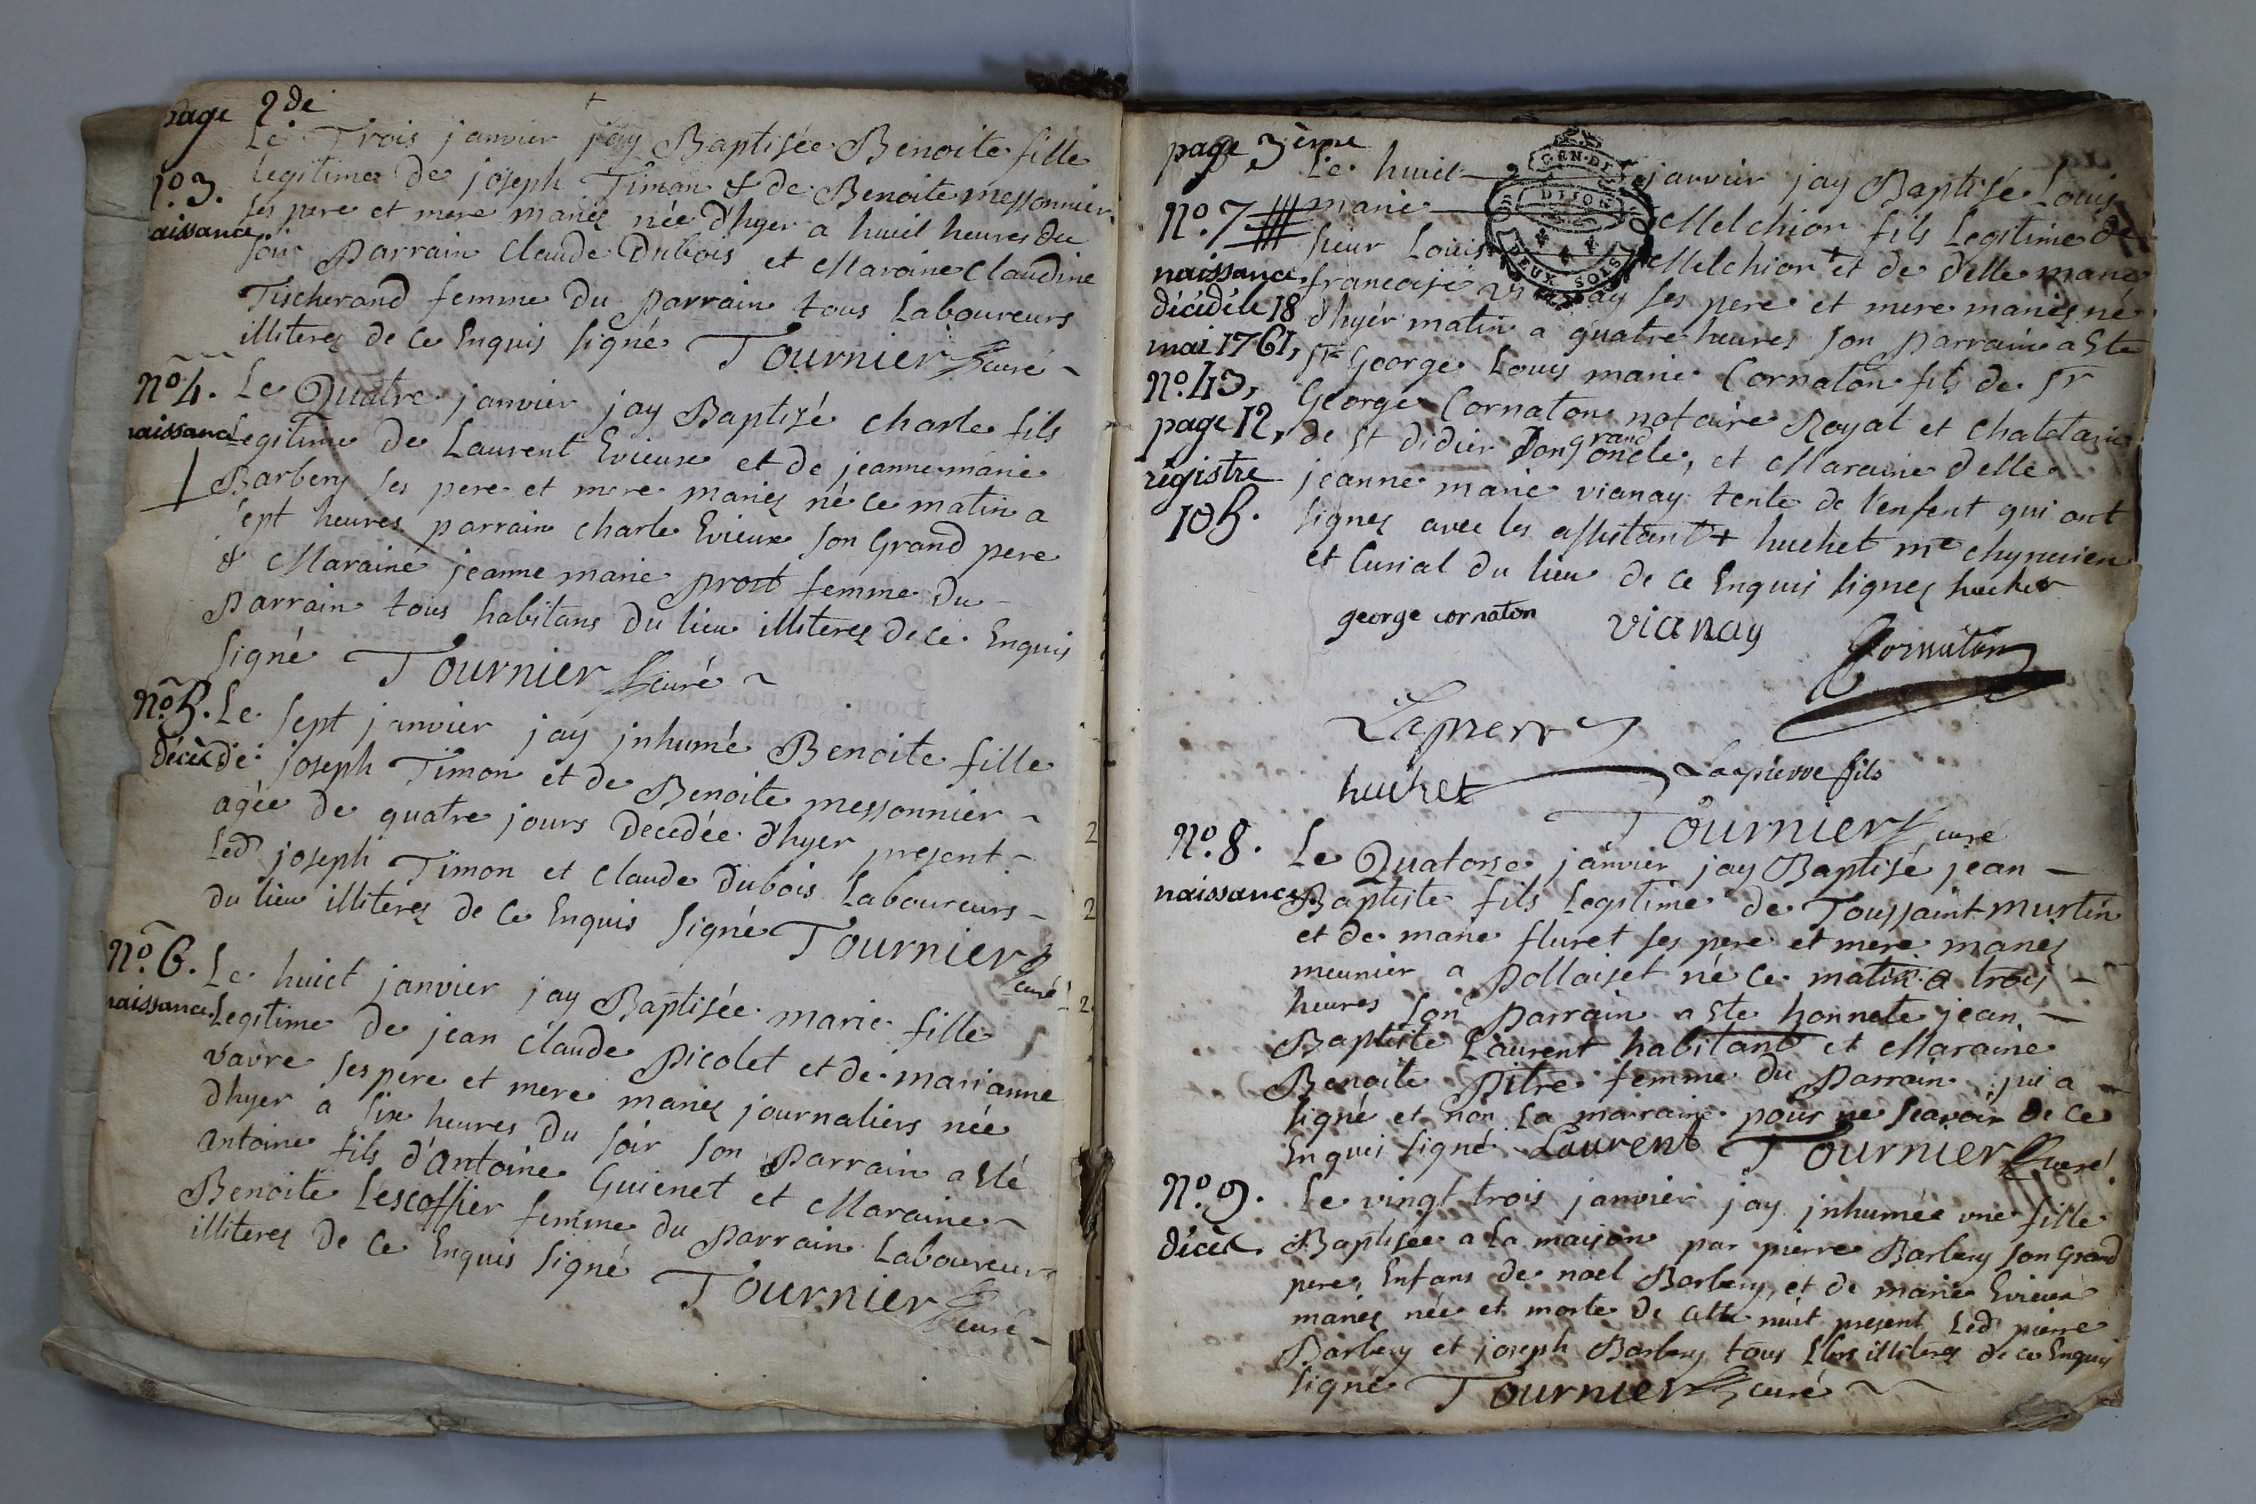 page 2de
Le Trois janvier jay Baptisée Benoite fille
legitime de joseph Timon & de Benoite messonnier
ses pere et mere mariez née d'hyer a huit heures du
soir parrain Claude Dubois et Maraine Claudine
Tischerand femme du parrain tous Laboureurs
illiterez de ce Enquis signé Tournier curé
No. 3.
naissance
No. 4. Le Quatre janvier jay Baptizé charle fils
naissance Legitime de Laurent Evieux et de jeanne marie
Barbery ses pere et mere mariez né ce matin a
sept heures parrain charle Evieux son Grand pere
& Maraine jeanne marie prost femme du
parrain tous habitans du lieu illiterez de ce Enquis
signé Tournier curé
No. 5. Le sept janvier jay jnhumé Benoite fille
décès de joseph Timon et de Benoite messonnier
agée de quatre jours decedée d'hyer present
Led joseph Timon et Claude Dubois Laboureurs
du lieu illiterez de ce Enquis signé Tournier
curé
No. 6. Le huict janvier jay Baptisée marie fille
naissance. Legitime de jean Claude Picolet et de marianne
vavre ses pere et mere mariez journaliers née
d'hyer a six heures du soir son parrain a Eté
antoine fils d'antoine Guienet et Maraine
Benoite Lescoffier femme du parrain Laboureur
illiterez de ce Enquis signé
Tournier curé
page 3ème
Le huit janvier jay Baptisé Louis
marie Melchior fils Legitime de
sieur Louis Melchior + et de delle marie
francoise ses pere et mere mariez né
d'hyer matin a quatre heures son parrain a Ete
Sr George Louis marie Cornaton fils de Sr
George Cornaton notaire Royal et chatelain
de St didier son grand oncle, et Maraine delle
jeanne marie vianay tente de l'enfent qui ont
signez avec les assistant + huchet me chyrurien
et Curial du lieu de ce Enquis signez huchet
No. 7
naissance.
décédé le 18
mai 1761,
No. 43,
page 12,
régistre
105.
george cornaton vianay Cornaton
Lapierre
huchet Lapierre fils
Tournier curé
No. 8. Le Quatorze janvier jay Baptisé jean
naissance. Baptiste fils Legitime de Toussaint murtin
et de marie fluret ses pere et mere mariez
meunier a Pollaiset né ce matin a trois
heures son Parrain a Ete honnete jean
Baptiste Laurent habitant et Maraine
Benoite Pitre femme du parrain qui a
signé et non la marraine pour ne scavoir de ce
Enquis signé Laurent Tournier curé
No. 9. Le vingt trois janvier jay jnhumée une fille
décès. Baptisée a la maison par pierre Barbery son grand
pere, Enfans de noel Barbery, et de marie Evieux
mariez née et morte de cette nuit present Led pierre
Barbery et joseph Barbery tous illiterez de ce Enquis
signé Tournier curé